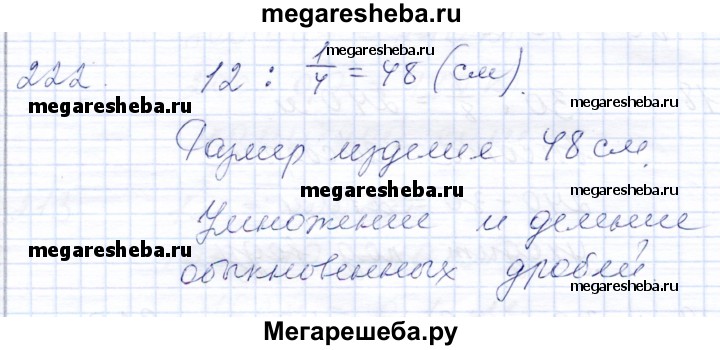 megaresheba.ru
222. 12 : 1/4 = 48 (см).
megaresheba.ru
megaresheba.ru
megaresheba.ru
Размер изделия 48 см.
megaresheba.ru
megaresheba.ru
Умножение и деление
megaresheba.ru
обыкновенных дробей
megaresheba.ru
Мегарешеба.ру